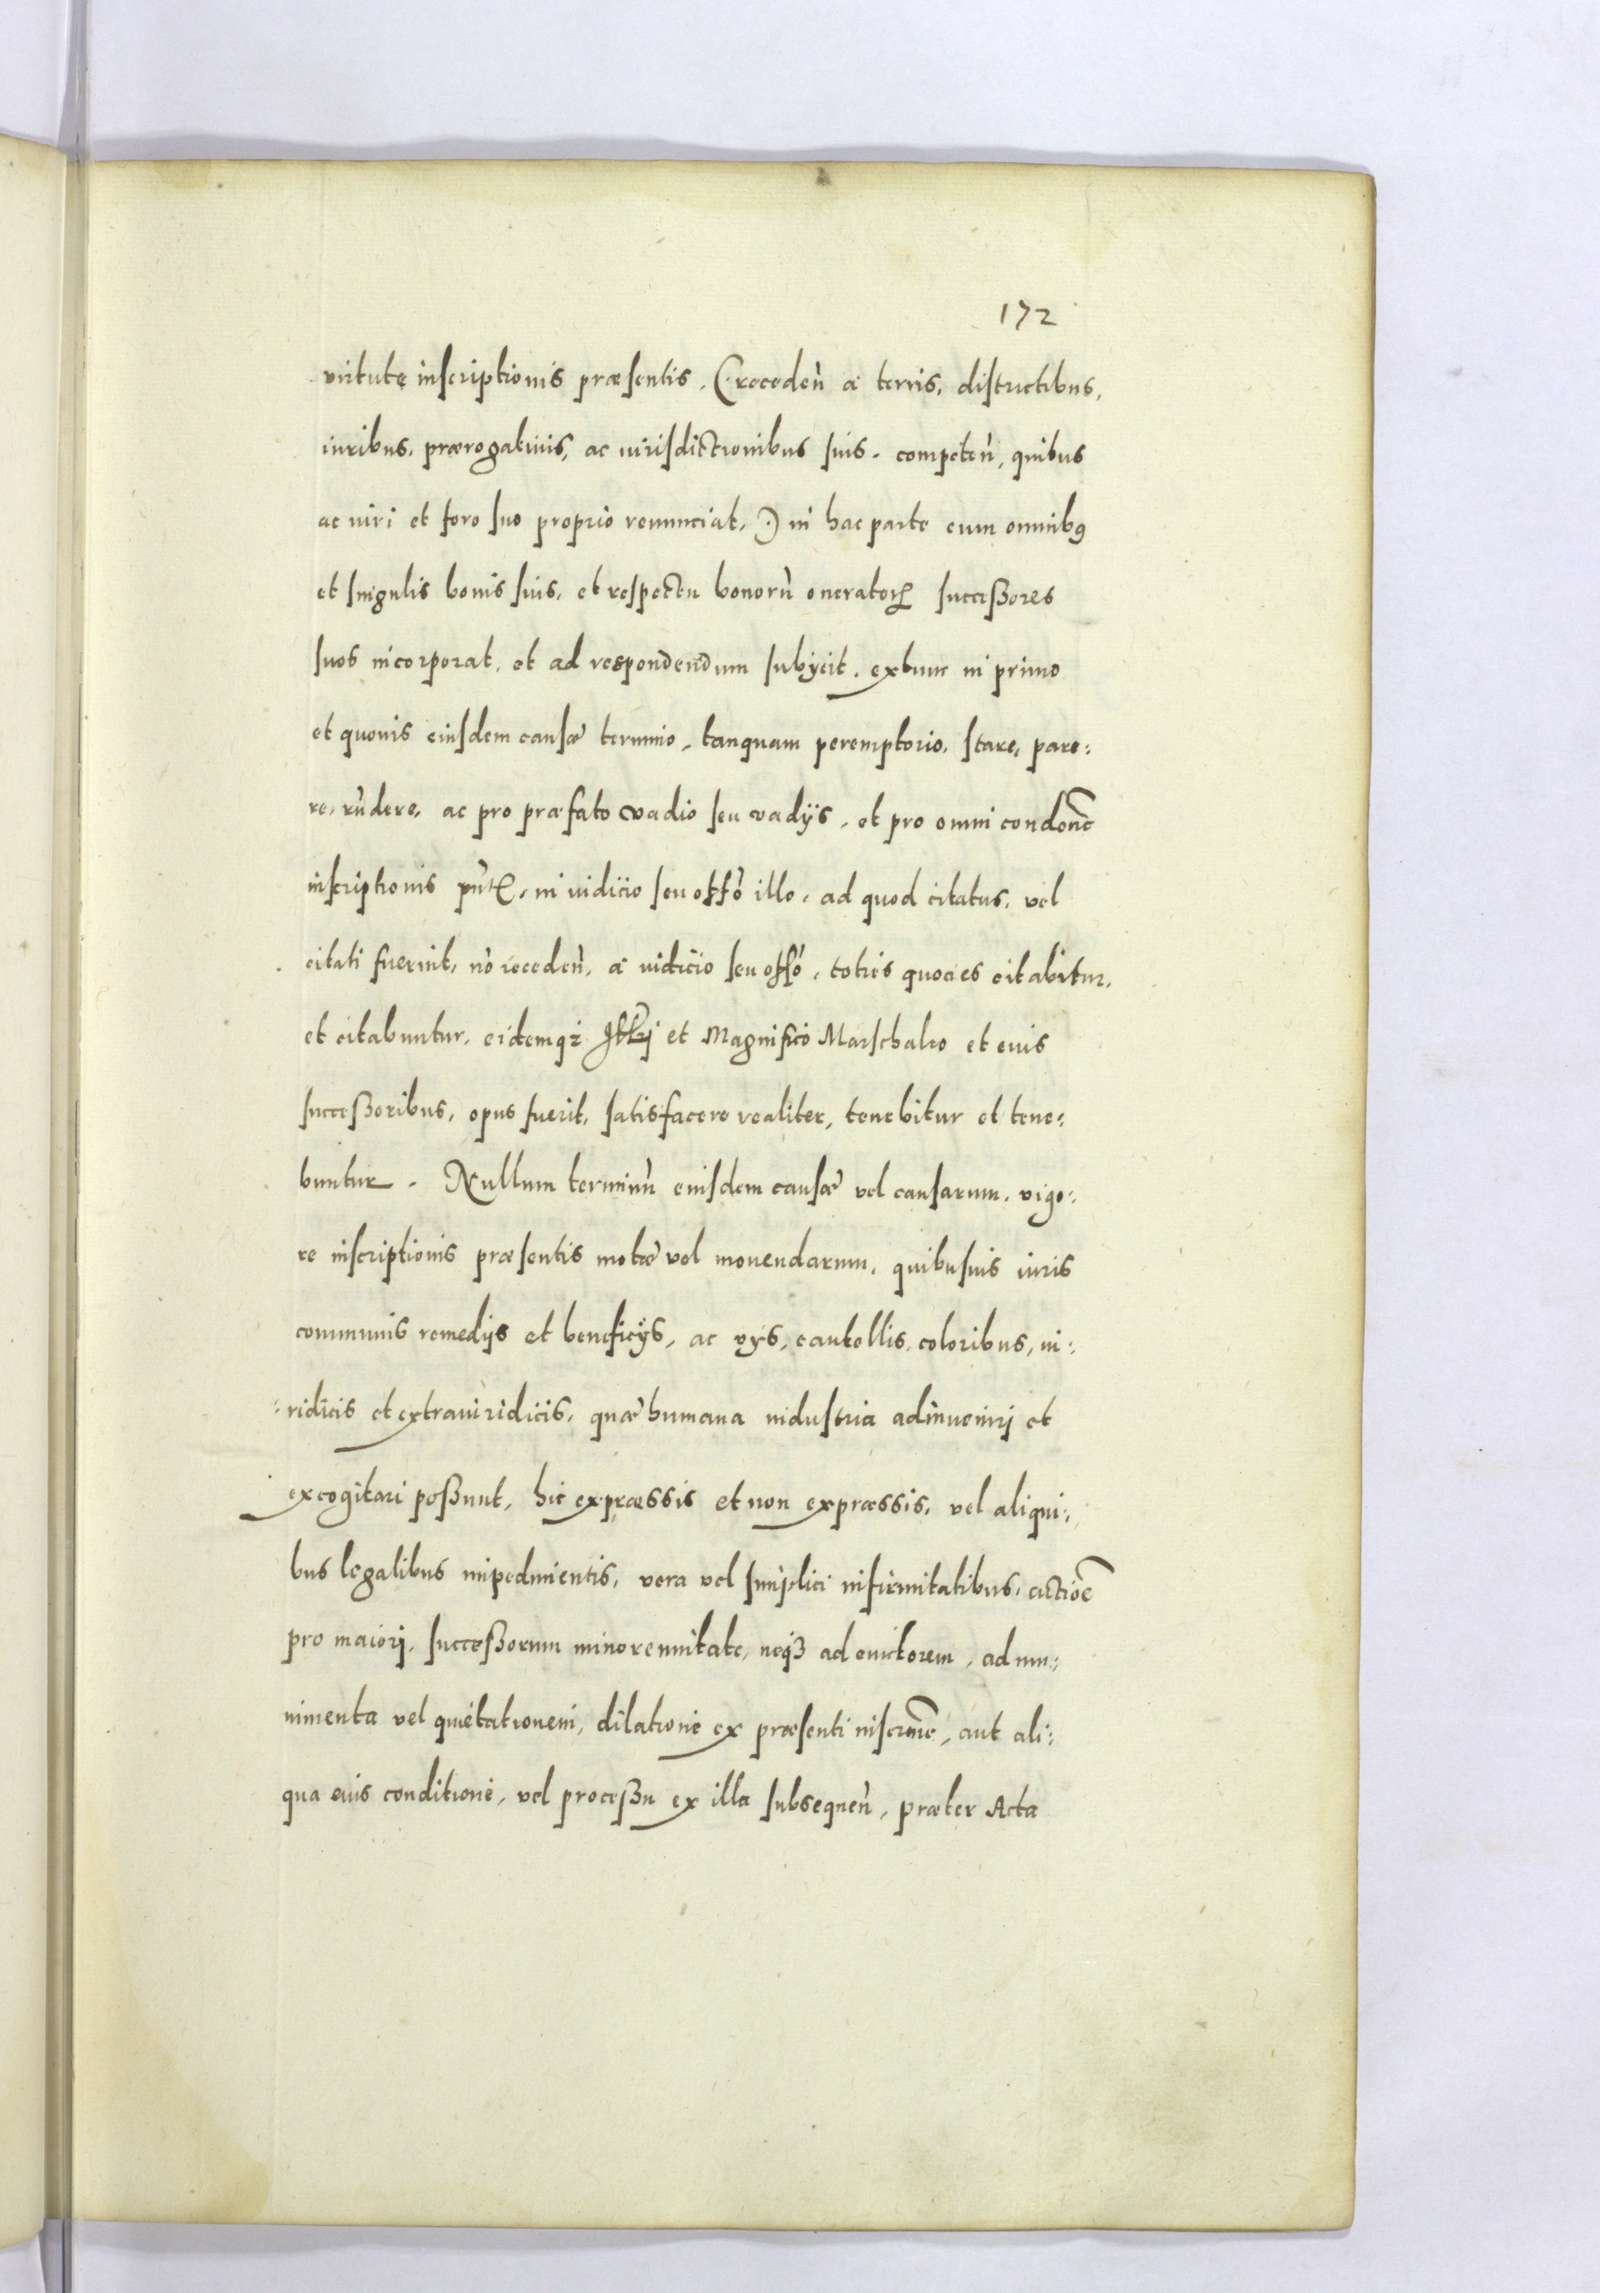 172
virtute inscriptionis præsentis. (recedeǹ a terris, districtibus,
iuribus, prærogatiuis, ac iurisdictionibus suis. competeǹ, quibus
ac iuri et foro suo proprio renunciat.) in hac parte cum omnibꝰ
et singulis bonis suis, et respectu bonorù oneratorꝝ successores
suos incorporat, et ad respondendum subijcit. extunc in primo
et quouis eiusdem causæ termino, tanquam peremptorio, stare, pare:
re, rǹdere, ac pro præfato vadio seu vadijs, et pro omni condōne
inscriptionis pǹtꝭ, in iudicio seu offò illo, ad quod citatus, vel
citati fuerint, nò recedeǹ, a iudicio seu offò, toties quoties citabitur,
et citabuntur, eidemqꝫ Illri et Magnifico Marschalco et eius
successoribus, opus fuerit, satisfacere realiter, tenebitur et tene:
buntur. Nullum terminù eiusdem causæ vel causarum, vigo:
re inscriptionis præsentis motæ vel mouendarum, quibusuis iuris
communis remedijs et beneficijs, ac vijs, cautellis, coloribus, iu:
:ridicis et extraiuridicis, quæ humana industria adinueniri et
excogitari possunt, hic expræssis et non expræssis, vel aliqui:
bus legalibus impedimentis, vera vel simplici infirmitatibus, actiōe
pro maiori, successorum minorennitate, neqꝫ ad euictorem, ad mu:
nimenta vel quietationem, dilatione ex præsenti inscrōne, aut ali:
qua eius conditione, vel processu ex illa subsequeǹ, præter Acta